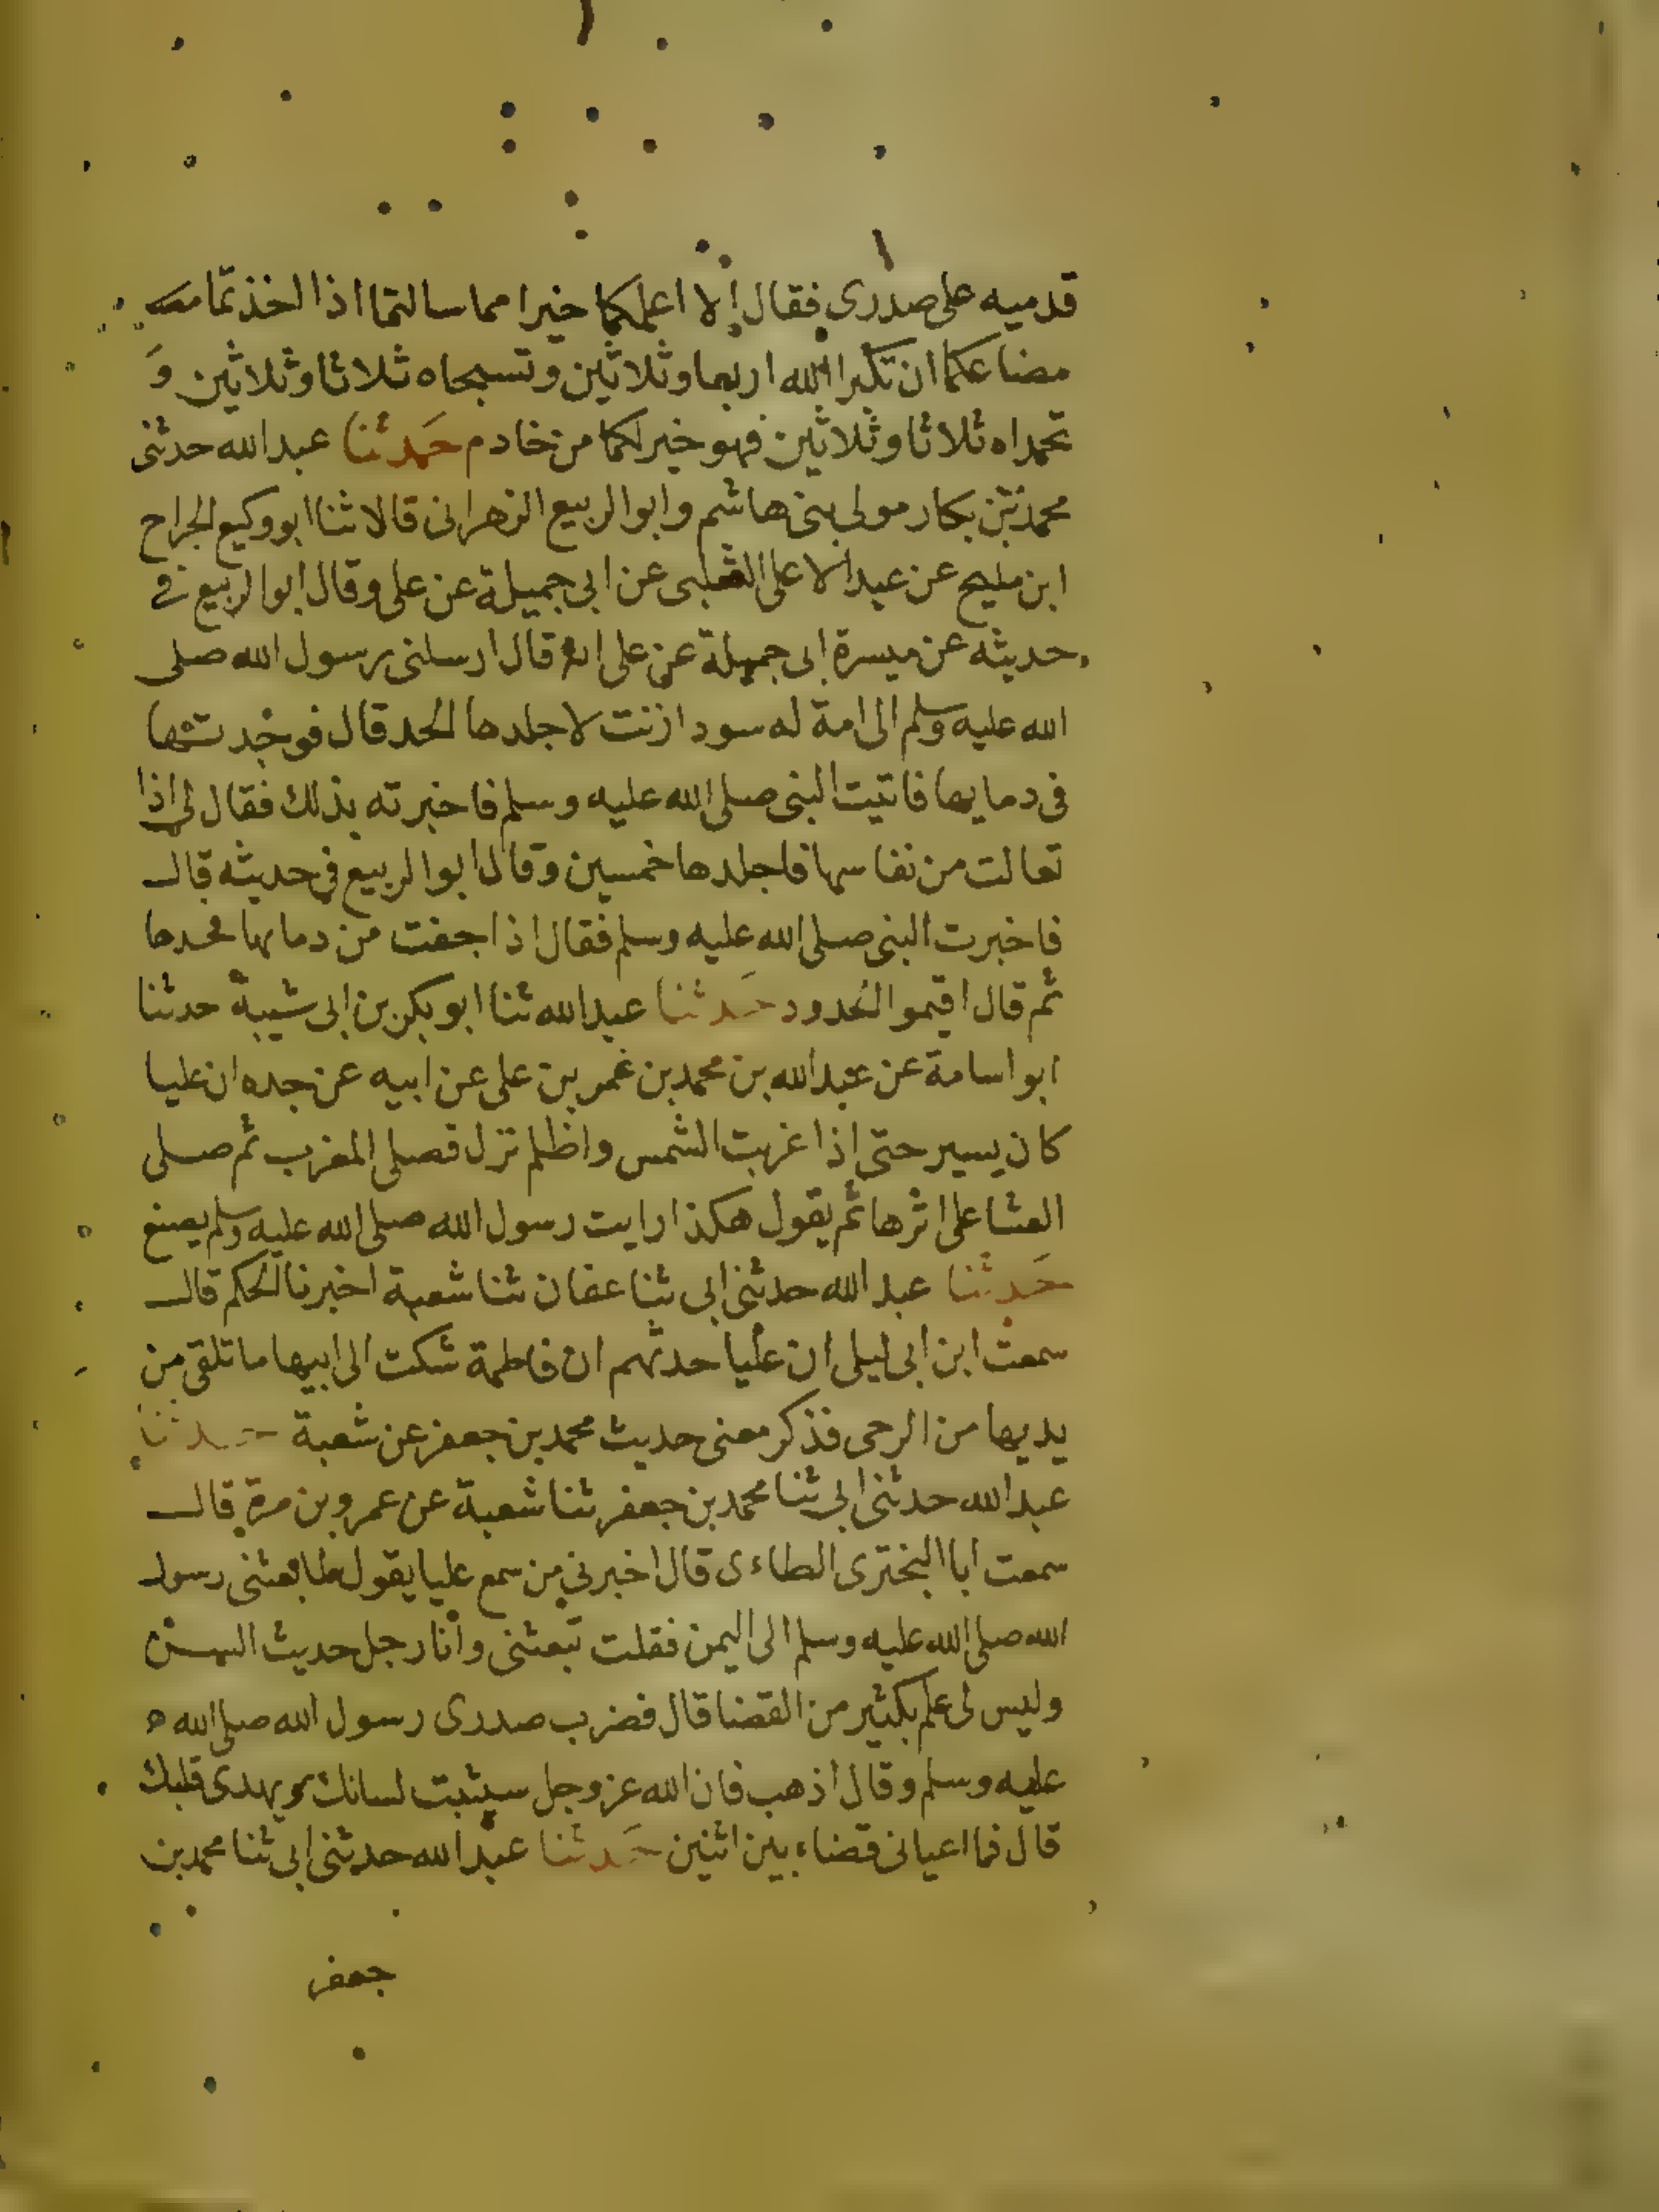 قدميه على صدرى فقال الا اعلمكما خيرا مما سالتما اذا اخذتما
مضاعكما ان تكبرا الله اربعا وثلاثين وتسبحاه ثلاثا وثلاثين و
تحمداه ثلاثا وثلاثين فهو خير لكما من خادم حدثنا عبدالله حدثنى
محمد بن بكار مولى بنى هاشم وابو الربيع الزهرانى قالا ثنا ابو وكيع الجراح
ابن مليح عن عبد الاعلى الثعلبى عن ابى جميلة عن على وقال ابو الربيع فى
حديثه عن ميسرة ابى جميلة عن على انه قال ارسلنى رسول الله صلى
الله عليه وسلم الى امة له سودا زنت لاجلدها الحد قال فوجدتها
فى دمايها فاتيت النبى صلى الله عليه وسلم فاخبرته بذلك فقال لى اذا
تعالت من نفاسها فاجلدها خمسين وقال ابو الربيع فى حديثه قال
فاخبرت النبى صلى الله عليه وسلم فقال اذا جفت من دمايها فحدها
ثم قال اقيموا الحدود حدثنا عبدالله ثنا ابو بكر بن ابى شيبة حدثنا
ابو اسامة عن عبدالله بن محمد بن عمر بن على عن ابيه عن جده ان عليا
كان يسير حتى اذا غربت الشمس واظلم نزل فصلى المغرب ثم صلى
العشا على اثرها ثم يقول هكذا رايت رسول الله صلى الله عليه وسلم يصنع
حدثنا عبد الله حدثنى ابى ثنا عفان ثنا شعبة اخبرنا الحكم قال
سمعت ابن ابى ليلى ان عليا حدثهم ان فاطمة شكت الى ابيها ما تلقى من
يديها من الرحى فذكر معنى حديث محمد بن جعفر عن شعبة حدثنا
عبدالله حدثنى ابى ثنا محمد بن جعفر ثنا شعبة عن عمرو بن مرة قال
سمعت ابا البخترى الطاءى قال اخبرنى من سمع عليا يقول لما بعثنى رسول
الله صلى الله عليه وسلم الى اليمن فقلت تبعثنى وانا رجل حديث السن
وليس لى علم بكثير من القضا قال فضرب صدرى رسول الله صلى الله
عليه وسلم وقال اذهب فان الله عز وجل سيثبت لسانك ويهدى قلبك
قال فما اعيانى قضاء بين اثنين حدثنا عبدالله حدثنى ابى ثنا محمد بن
جعفر